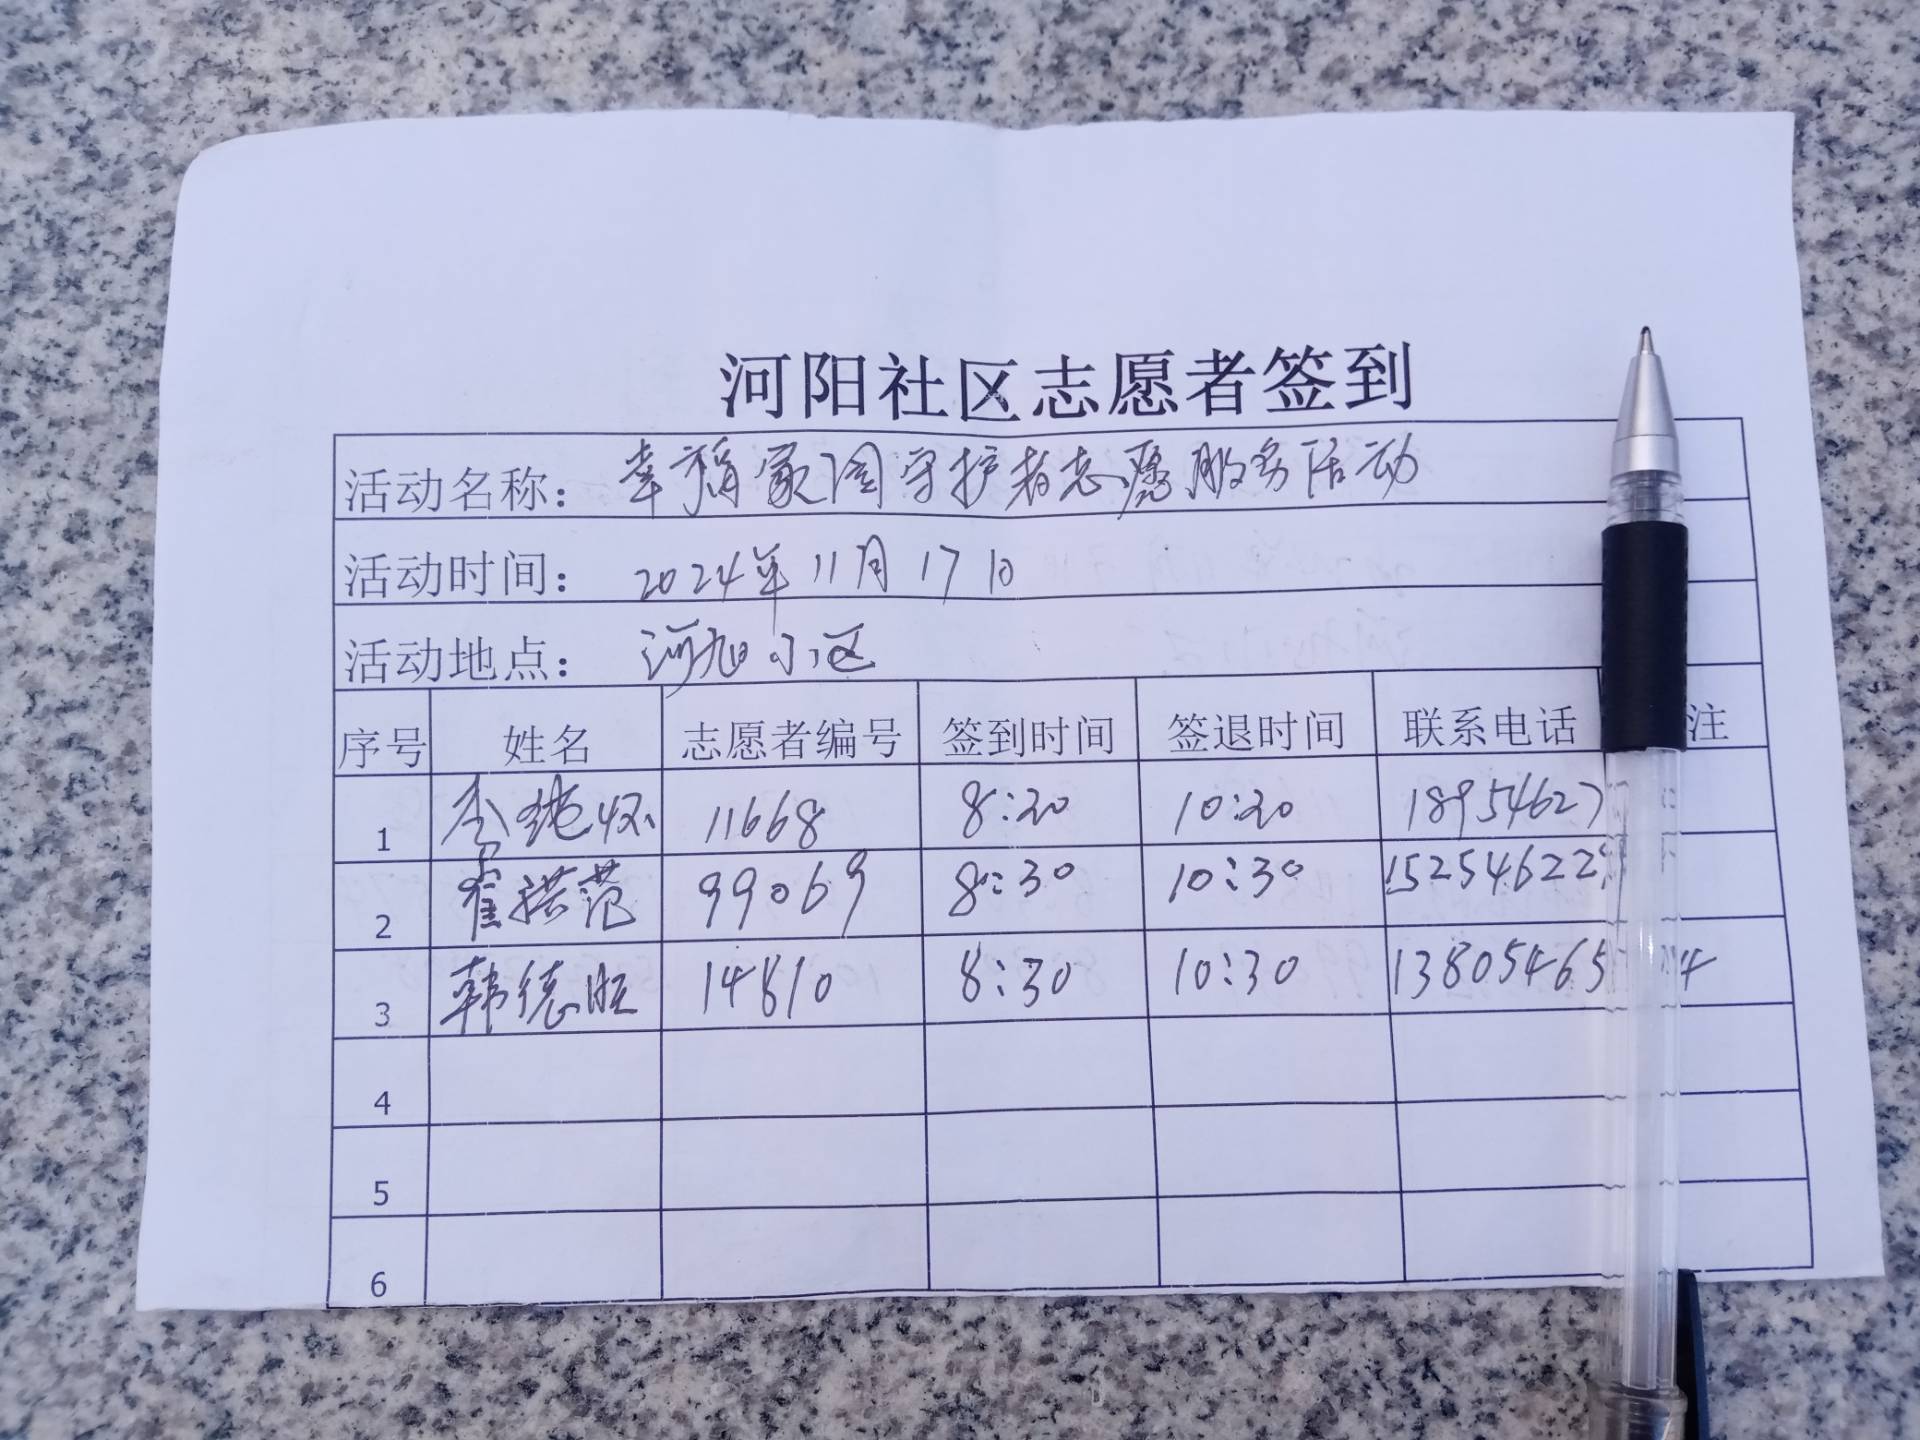 河阳社区志愿者签到
活动名称： 幸福家园守护者志愿服务活动
活动时间： 2024年11月17日
活动地点： 河旭小区
序号 姓名 志愿者编号 签到时间 签退时间 联系电话 注
1 李纯怀 11668 8:20 10:20 18954627
2 霍洪范 99069 8:30 10:30 152546229
3 韩德旺 14810 8:30 10:30 13805465 4
4
5
6